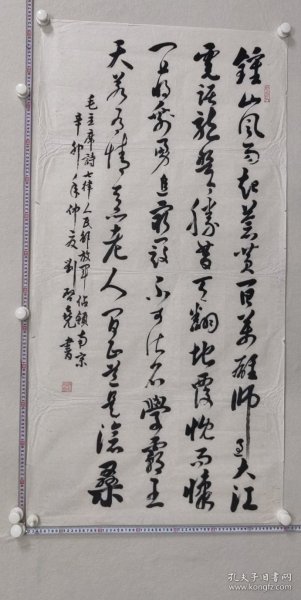 鐘山風雨起蒼黄百萬雄師過大江
虎踞龍盤今勝昔天翻地覆慨而慷
宜將剩勇追窮寇不可沽名學霸王
天若有情天亦老人间正道是滄桑
毛主席詩七律人民解放軍佔領南京
辛卯年仲夏劉書
孔夫子旧书网